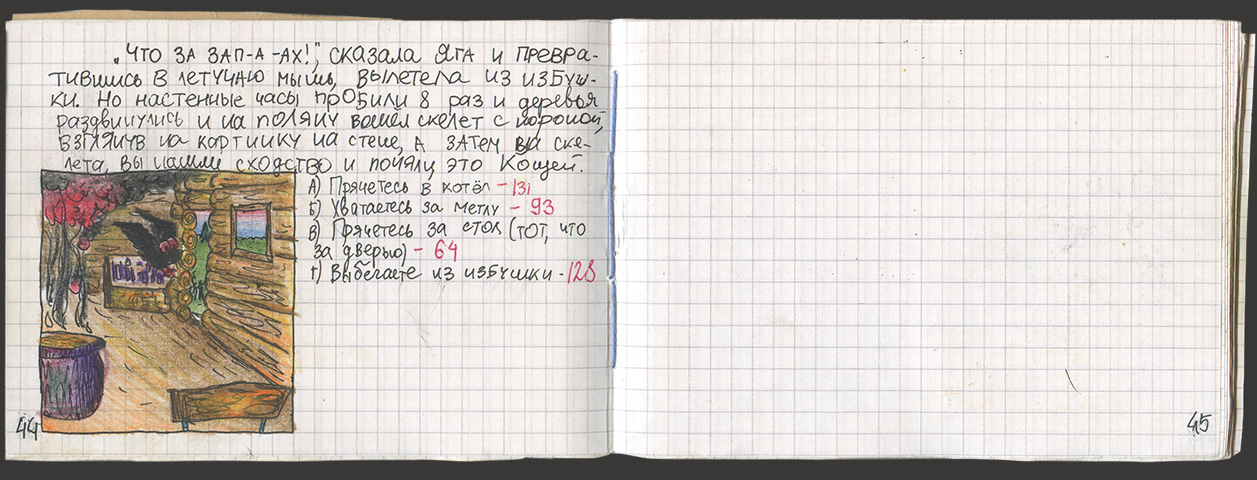 „Что за зап-а-ах!", сказала Яга и превра-
тившись в летучаю мышь, вылетела из избуш-
ки. Но настенные часы пробили 8 раз и деревья
раздвинулись и на поляну вошёл скелет с короной,
взглянув на картинку на стене, а затем на ске-
лета, вы нашли сходство и поняли, это Кощей.
А) Прячетесь в котёл - 131
Б) Хватаетесь за метлу - 93
В) Прячетесь за стол (тот, что
за дверью) - 64
Г) Выбегаете из избушки - 128
44
45